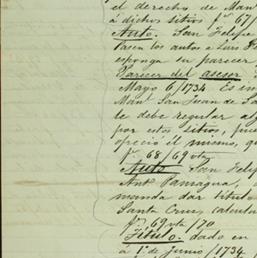 el derecho de Man
á dichos sitios fs. 67/
Auto. San Felipe
Pasen los autos a Luis
esponga su parecer
Parecer del asesor.
Mayo 6/1734 Es
Manl. San Juan de
le debe regular al
por estos sitios,
ofreció él mismo, q
fs. 68/69 vta
Auto San Felip
Ant. Pamagua,
manda dar titulo
Santa Cruz, calcul
fs. 69 vta/70
Titulo. dado en
á 1º de Junio/1734